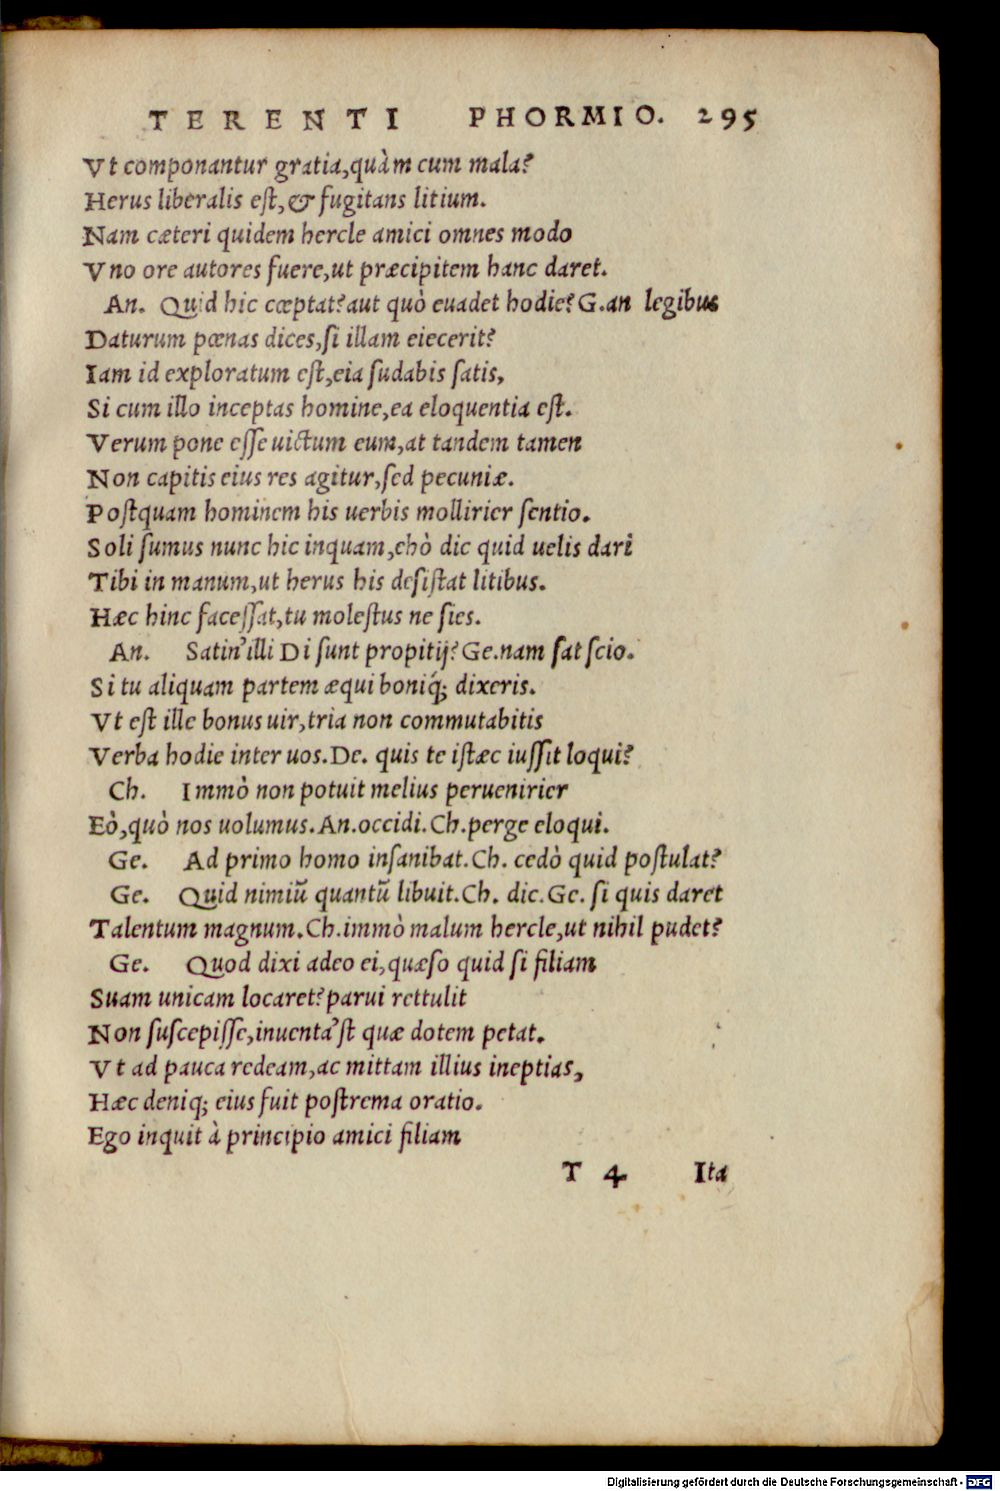 TERENTI PHORMIO. 295
Vt componantur gratia,quàm cum mala?
Herus liberalis est,& fugitans litium.
Nam cæteri quidem hercle amici omnes modo
Vno ore autores fuere,ut præcipitem hanc daret.
An. Quid hic cœptat?aut quò euadet hodie?G.an legibus
Daturum pœnas dices,si illam eiecerit?
Iam id exploratum est,eia sudabis satis,
Si cum illo inceptas homine,ea eloquentia est.
Verum pone esse uictum eum,at tandem tamen
Non capitis eius res agitur,sed pecuniæ.
Postquam hominem his uerbis mollirier sentio.
Soli sumus nunc hic inquam,ehò dic quid uelis dari
Tibi in manum,ut herus his desistat litibus.
Hæc hinc facessat,tu molestus ne sies.
An. Satin'illi Di sunt propitij?Ge.nam sat scio.
Si tu aliquam partem æqui boniq́; dixeris.
Vt est ille bonus uir,tria non commutabitis
Verba hodie inter uos.De. quis te istæc iussit loqui?
Ch. Immò non potuit melius peruenirier
Eò,quò nos uolumus.An.occidi.Ch.perge eloqui.
Ge. Ad primo homo insanibat.Ch. cedò quid postulat?
Ge. Quid nimiũ quantũ libuit.Ch. dic.Ge. si quis daret
Talentum magnum.Ch.immò malum hercle,ut nihil pudet?
Ge. Quod dixi adeo ei,quæso quid si filiam
Suam unicam locaret?parui rettulit
Non suscepisse,inuenta'st quæ dotem petat.
Vt ad pauca redeam,ac mittam illius ineptias,
Hæc deniq; eius fuit postrema oratio.
Ego inquit à principio amici filiam
T 4 Ita
Digitalisierung gefördert durch die Deutsche Forschungsgemeinschaft - DFG